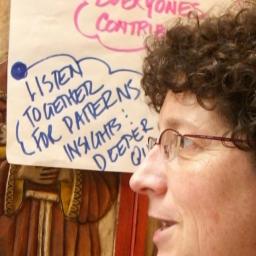 EVERYONES
CONTRIB
LISTEN
TOGETHER
FOR PATTERNS
INSIGHTS :
DEEPER
QU